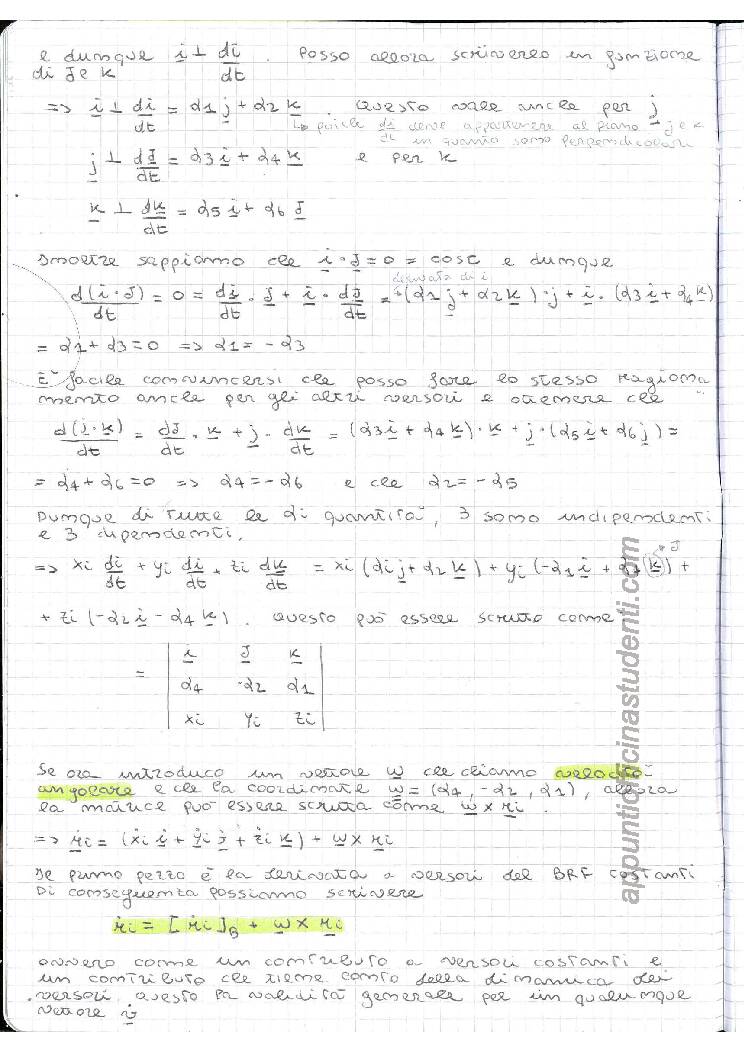 e dunque i ⊥ di/dt . Posso allora scriverlo in funzione
di J e k
=> i ⊥ di/dt = α1 j + α2 k . Questo vale anche per j
↳ poiché di/dt deve appartenere al piano j e k
in quanto sono perpendicolari
j ⊥ dJ/dt = α3 i + α4 k e per k
k ⊥ dk/dt = α5 i + α6 J
Inoltre sappiamo che i · J = 0 = cost e dunque
derivata di i
d(i · J)/dt = 0 = di/dt · J + i · dJ/dt = (α1 j + α2 k) · j + i · (α3 i + α4 k)
= α1 + α3 = 0 => α1 = - α3
È facile convincersi che posso fare lo stesso ragiona
mento anche per gli altri versori e ottenere che
d(j · k)/dt = dJ/dt · k + j · dk/dt = (α3 i + α4 k) · k + j · (α5 i + α6 j) =
= α4 + α6 = 0 => α4 = - α6 e che α2 = - α5
Dunque di tutte le αi quantità, 3 sono indipendenti
e 3 dipendenti.
=> xi di/dt + yi di/dt + zi dk/dt = xi (αi j + α2 k) + yi (-α1 i + α4 k) +
J
+ zi (-α2 i - α4 k) . Questo può essere scritto come
i J k
= α4 -α2 α1
xi yi zi
Se ora introduco un vettore w che chiamo velocità
angolare e che ha coordinate w = (α4, -α2, α1), allora
la matrice può essere scritta come w x ri .
=> ṙi = (ẋi i + ẏi j + żi k) + w x ri
Il primo pezzo è la derivata a versori del BRF costanti
Di conseguenza possiamo scrivere
ṙi = [ ṙi ]B + w x ri
ovvero come un contributo a versori costanti e
un contributo che tiene conto della dinamica dei
versori. Questo ha validità generale per un qualunque
vettore v
appuntiofficinastudenti.com